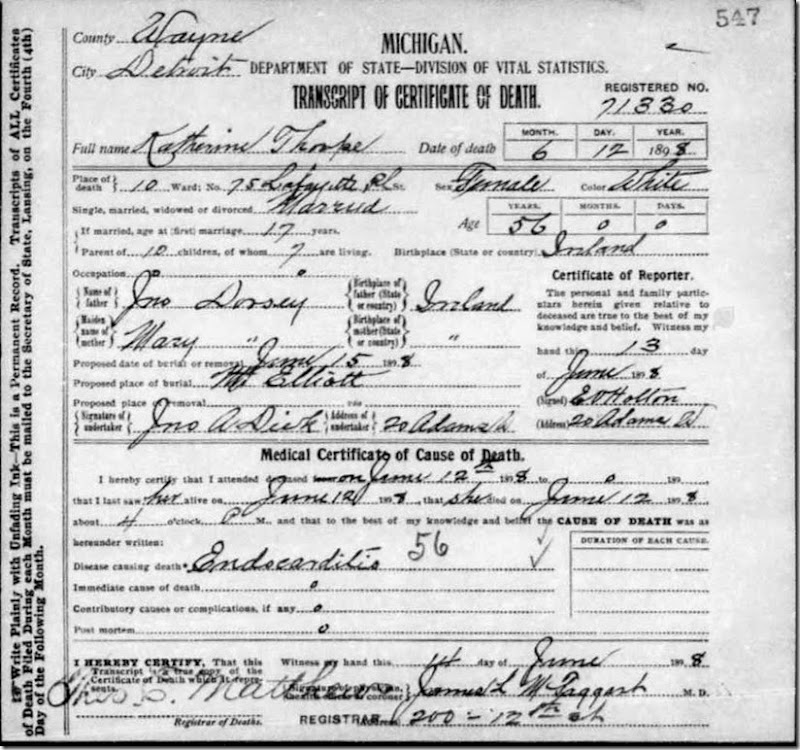 547
County Wayne
City Detroit
MICHIGAN.
DEPARTMENT OF STATE—DIVISION OF VITAL STATISTICS.
TRANSCRIPT OF CERTIFICATE OF DEATH.
REGISTERED NO.
71330
Full name Katherine Thorpe Date of death
MONTH. DAY. YEAR.
6 12 1898
Place of death 10 Ward; No. 75 Lafayette Pl St. Sex Female Color White
Single, married, widowed or divorced Married
Age YEARS. MONTHS. DAYS.
56 0 0
If married, age at (first) marriage, 17 years.
Parent of 10 children, of whom 7 are living. Birthplace (State or country) Ireland
Occupation 0
Name of father Jno Dorsey Birthplace of father (State or country) Ireland
Maiden name of mother Mary " Birthplace of mother (State or country) "
Proposed date of burial or removal June 15 1898
Proposed place of burial Mt Elliott
Proposed place of removal via
Signature of undertaker Jno A Dick Address of undertaker 20 Adams
Certificate of Reporter.
The personal and family particulars herein given relative to
deceased are true to the best of my
knowledge and belief. Witness my
hand this 13 day
of June 1898
(Signed) E V Holton
(Address) 20 Adams
Medical Certificate of Cause of Death.
I hereby certify that I attended deceased from on June 12th 1898 to 0 189
that I last saw her alive on June 12 1898, that she died on June 12 1898
about 4 o'clock P M., and that to the best of my knowledge and belief the CAUSE OF DEATH was as
hereunder written:
DURATION OF EACH CAUSE.
56
Disease causing death* Endocarditis
Immediate cause of death 0
Contributory causes or complications, if any 0
Post mortem 0
I HEREBY CERTIFY, That this
Transcript is a true copy of the
Certificate of Death which it represents.
Registrar of Deaths.
Witness my hand this 14 day of June 1898
James L McTaggart M. D.
REGISTRAR
Address 200 - 12th st
Write Plainly with Unfading Ink—This is a Permanent Record. Transcripts of ALL Certificates
of Death Filed During each Month must be mailed to the Secretary of State, Lansing, on the Fourth (4th)
Day of the Following Month.